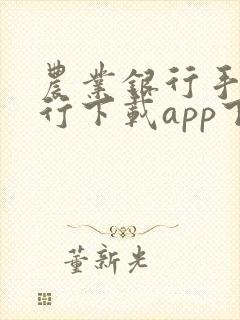 農業銀行手
行下載app下
董新光